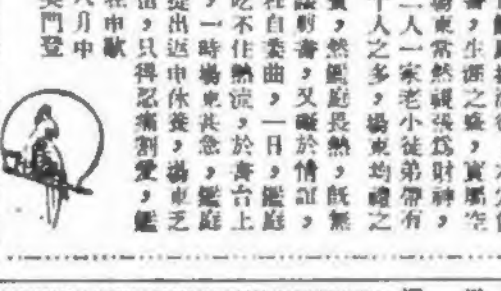 書,生涯之盛,實屬空
場東當然視張為財神,
二人一家老小徒弟帶有
十人之多,場東均禮之
,然鑑庭長熱,既無
剪書,又礙於情
自委曲,一日,鑑庭
吃不住熱流,於書台上
,一時場東甚急,鑑庭
提出返申休養,場東乏
,只得忍痛割愛,鑑
在申歇
八月中
門登